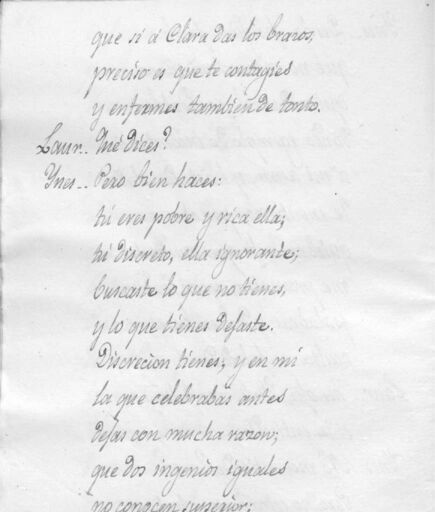 que si á Clara das los brazos,
preciso es que te contagies
y enfermes tambien de tonto.
Laur.. Qué dices?
Ynes.. Pero bien haces:
tú eres pobre y rica ella;
tú discreto, ella ignorante;
buscaste lo que no tienes,
y lo que tienes dejaste.
Discrecion tienes; y en mí
la que celebrabas antes
dejas con mucha razon;
que dos ingenios iguales
no conocen superior;